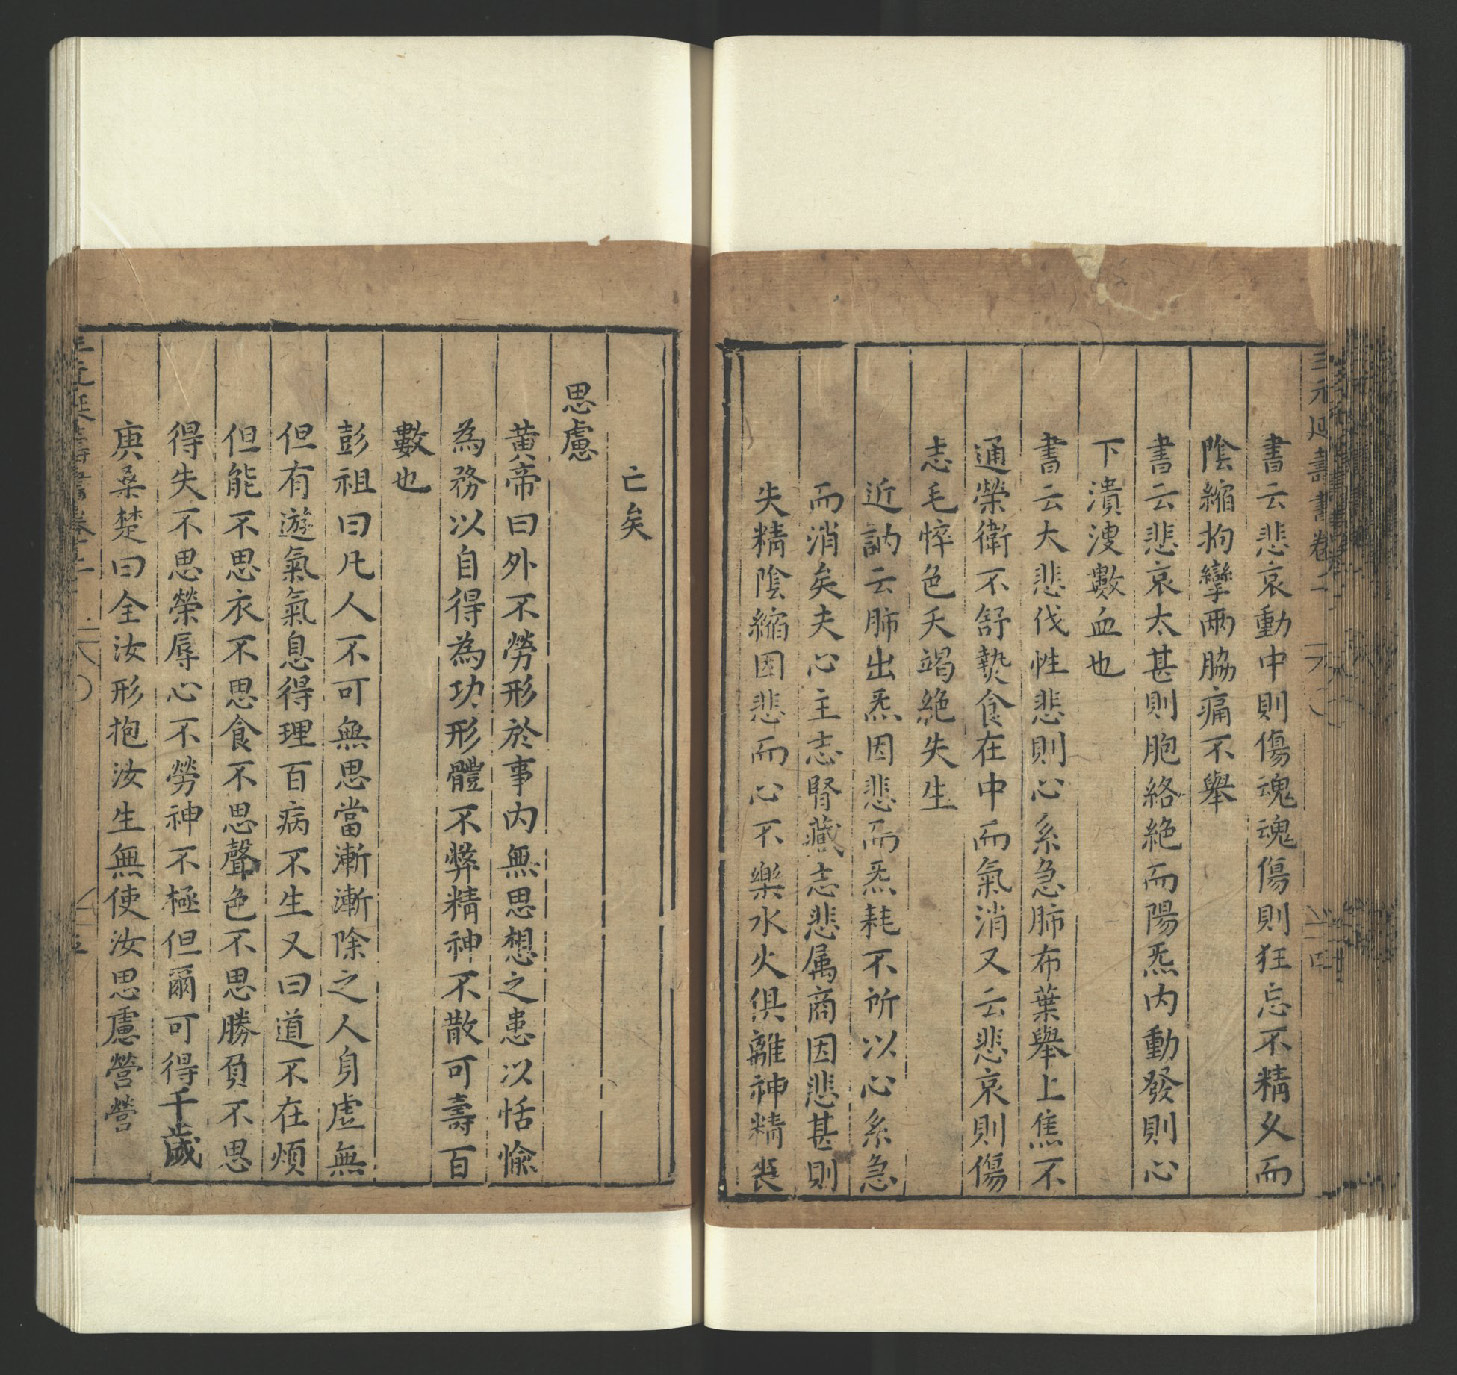 書云悲哀動中則傷魂魂傷則狂忘不精乆而
陰縮拘攣兩脇痛不舉
書云悲哀太甚則胞絡絶而陽炁内動發則心
下潰溲數血也
書云大悲伐性悲則心系急肺布葉舉上焦不
通榮衛不舒𤍠食在中而氣消又云悲哀則傷
志毛悴色夭竭絶失生
近訥云肺出炁因悲而炁耗不所以心系急
而消矣夫心主志腎藏志悲属商因悲甚則
失精陰縮因悲而心不樂水火俱離神精丧
亡矣
思慮
黄帝曰外不勞形於事内無思想之患以恬愉
為務以自得為功形體不弊精神不散可壽百
數也
彭祖曰凡人不可無思當漸漸除之人身虛無
但有遊氣氣息得理百病不生又曰道不在煩
但能不思衣不思食不思聲色不思勝負不思
得失不思榮辱心不勞神不極但爾可得千歲
庚桑楚曰全汝形抱汝生無使汝思慮營營